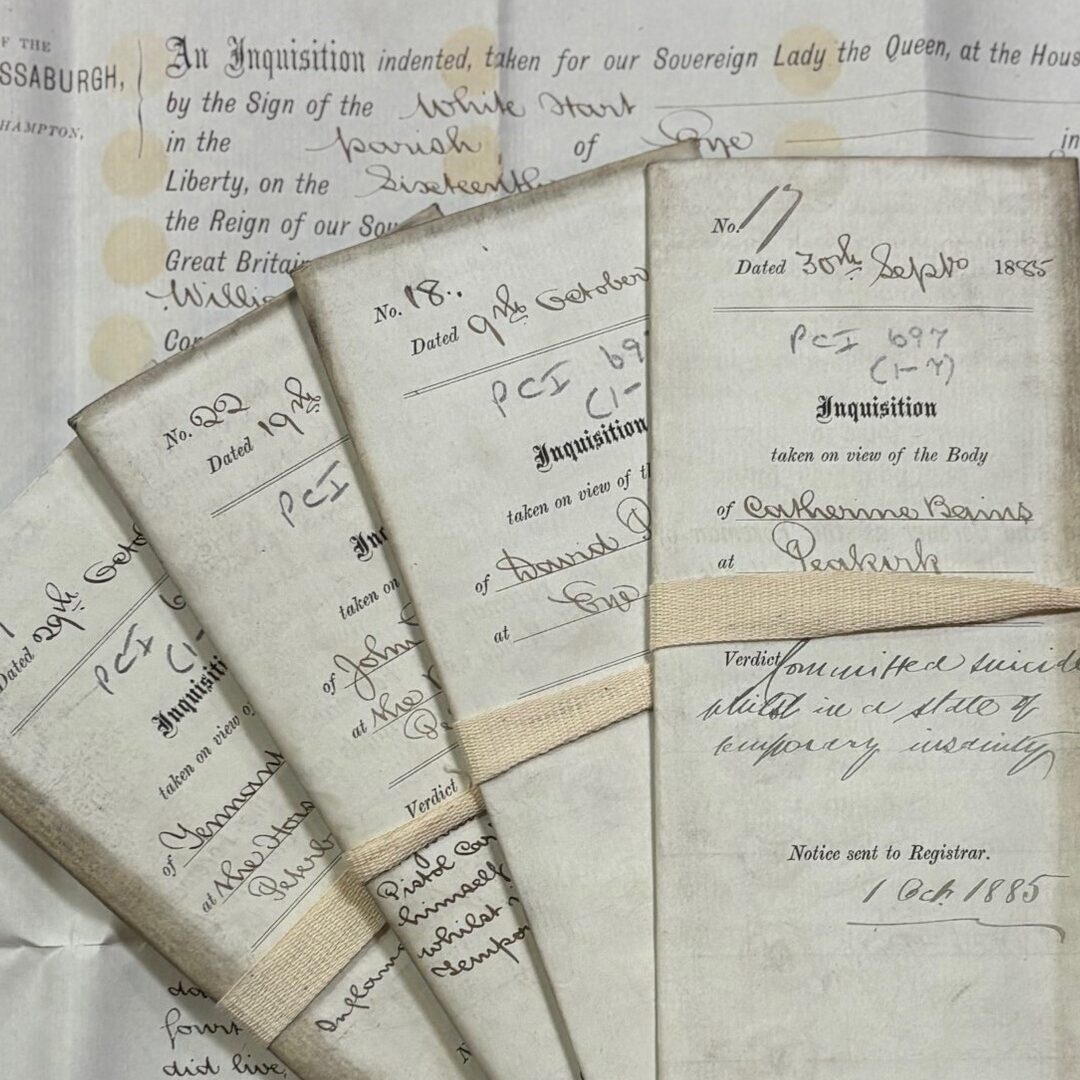 F THE
SSABURGH,
HAMPTON,
An Inquisition indented, taken for our Sovereign Lady the Queen, at the Hous
by the Sign of the White Hart
in the parish of Eye in
Liberty, on the Sixteenth
the Reign of our Sov
Great Britain
Willia
Cor
No. 17
Dated 30th Sept 1885
PCI 697
(1-7)
Inquisition
taken on view of the Body
of Catherine Bains
at Peakirk
Verdict Committed suicide
whilst in a state of
temporary insanity
Notice sent to Registrar.
1 Oct 1885
No. 18.
Dated 9th October
PCI 69
(1-
Inquisition
taken on view of th
of David
at Eye
No. 22
Dated 19th
PCI
Inq
taken on
of John
at the
Verdict
Pistol
himself
whilst
Tempo
Dated 29th Octo
PCI 6
(1-
Inquisiti
taken on view o
of
at the Hous
Peterb
Inflam
fourt
did live